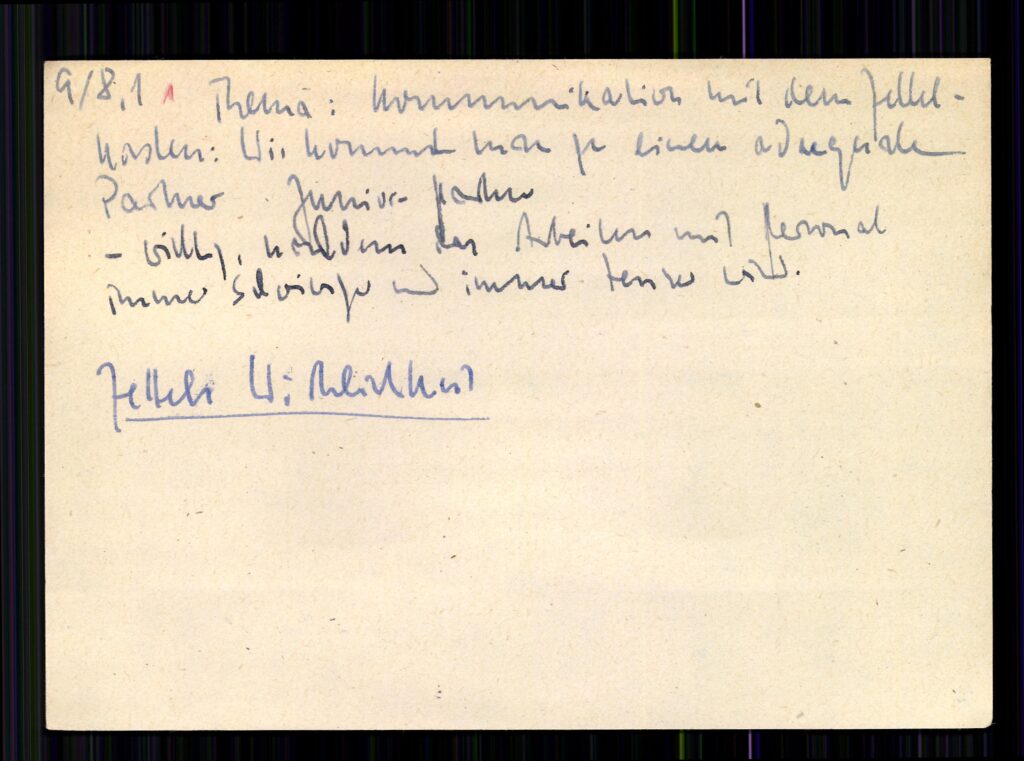 9/8,1 1 Thema: Kommunikation mit dem Zettel-
kasten: Wie kommt man zu einem adäquaten
Partner Junior-Partner
- wichtig, nachdem das Arbeiten mit Personal
immer schwieriger und immer teurer wird.
Zettels Wirklichkeit